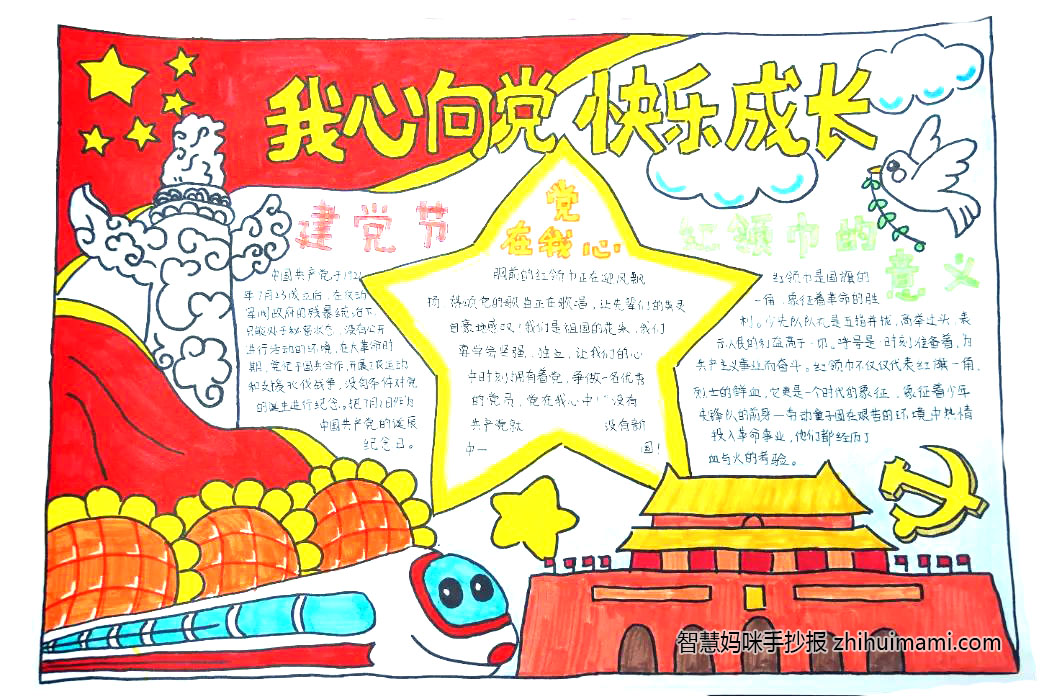 我心向党 快乐成长
建党节
中国共产党于1921
年7月23成立后,在反动
军阀政府的残暴统治下,
只能处于秘密状态,没有公开
进行活动的环境,在大革命时
期,党忙于国共合作,开展工农运动
和支援北伐战争,没有条件对党
的诞生进行纪念。把7月1日作为
中国共产党的诞辰
纪念日。
党
在我心
胸前的红领巾正在迎风飘
扬 歌颂党的歌声正在歌唱,让先辈们的
自豪地感叹!我们是祖国的花朵,我们
要学党坚强,独立,让我们的心
中时刻拥有着党,争做一名优秀
的党员,党在我心中!"没有
共产党就 没有新
中一 国!
红领巾的
意义
红领巾是国旗的
一角,象征着革命的胜
利。少先队队礼是五指并拢,高举过头,表
示人民的利益高于一切。呼号是:时刻准备着,为
共产主义事业而奋斗。红领巾不仅仅代表红旗一角,
烈士的鲜血,它更是一个时代的象征,象征着少年
先锋队的前身—劳动童子团在艰苦的环境中热情
投入革命事业,他们都经历了
血与火的考验。
智慧妈咪手抄报 zhihuimami.com